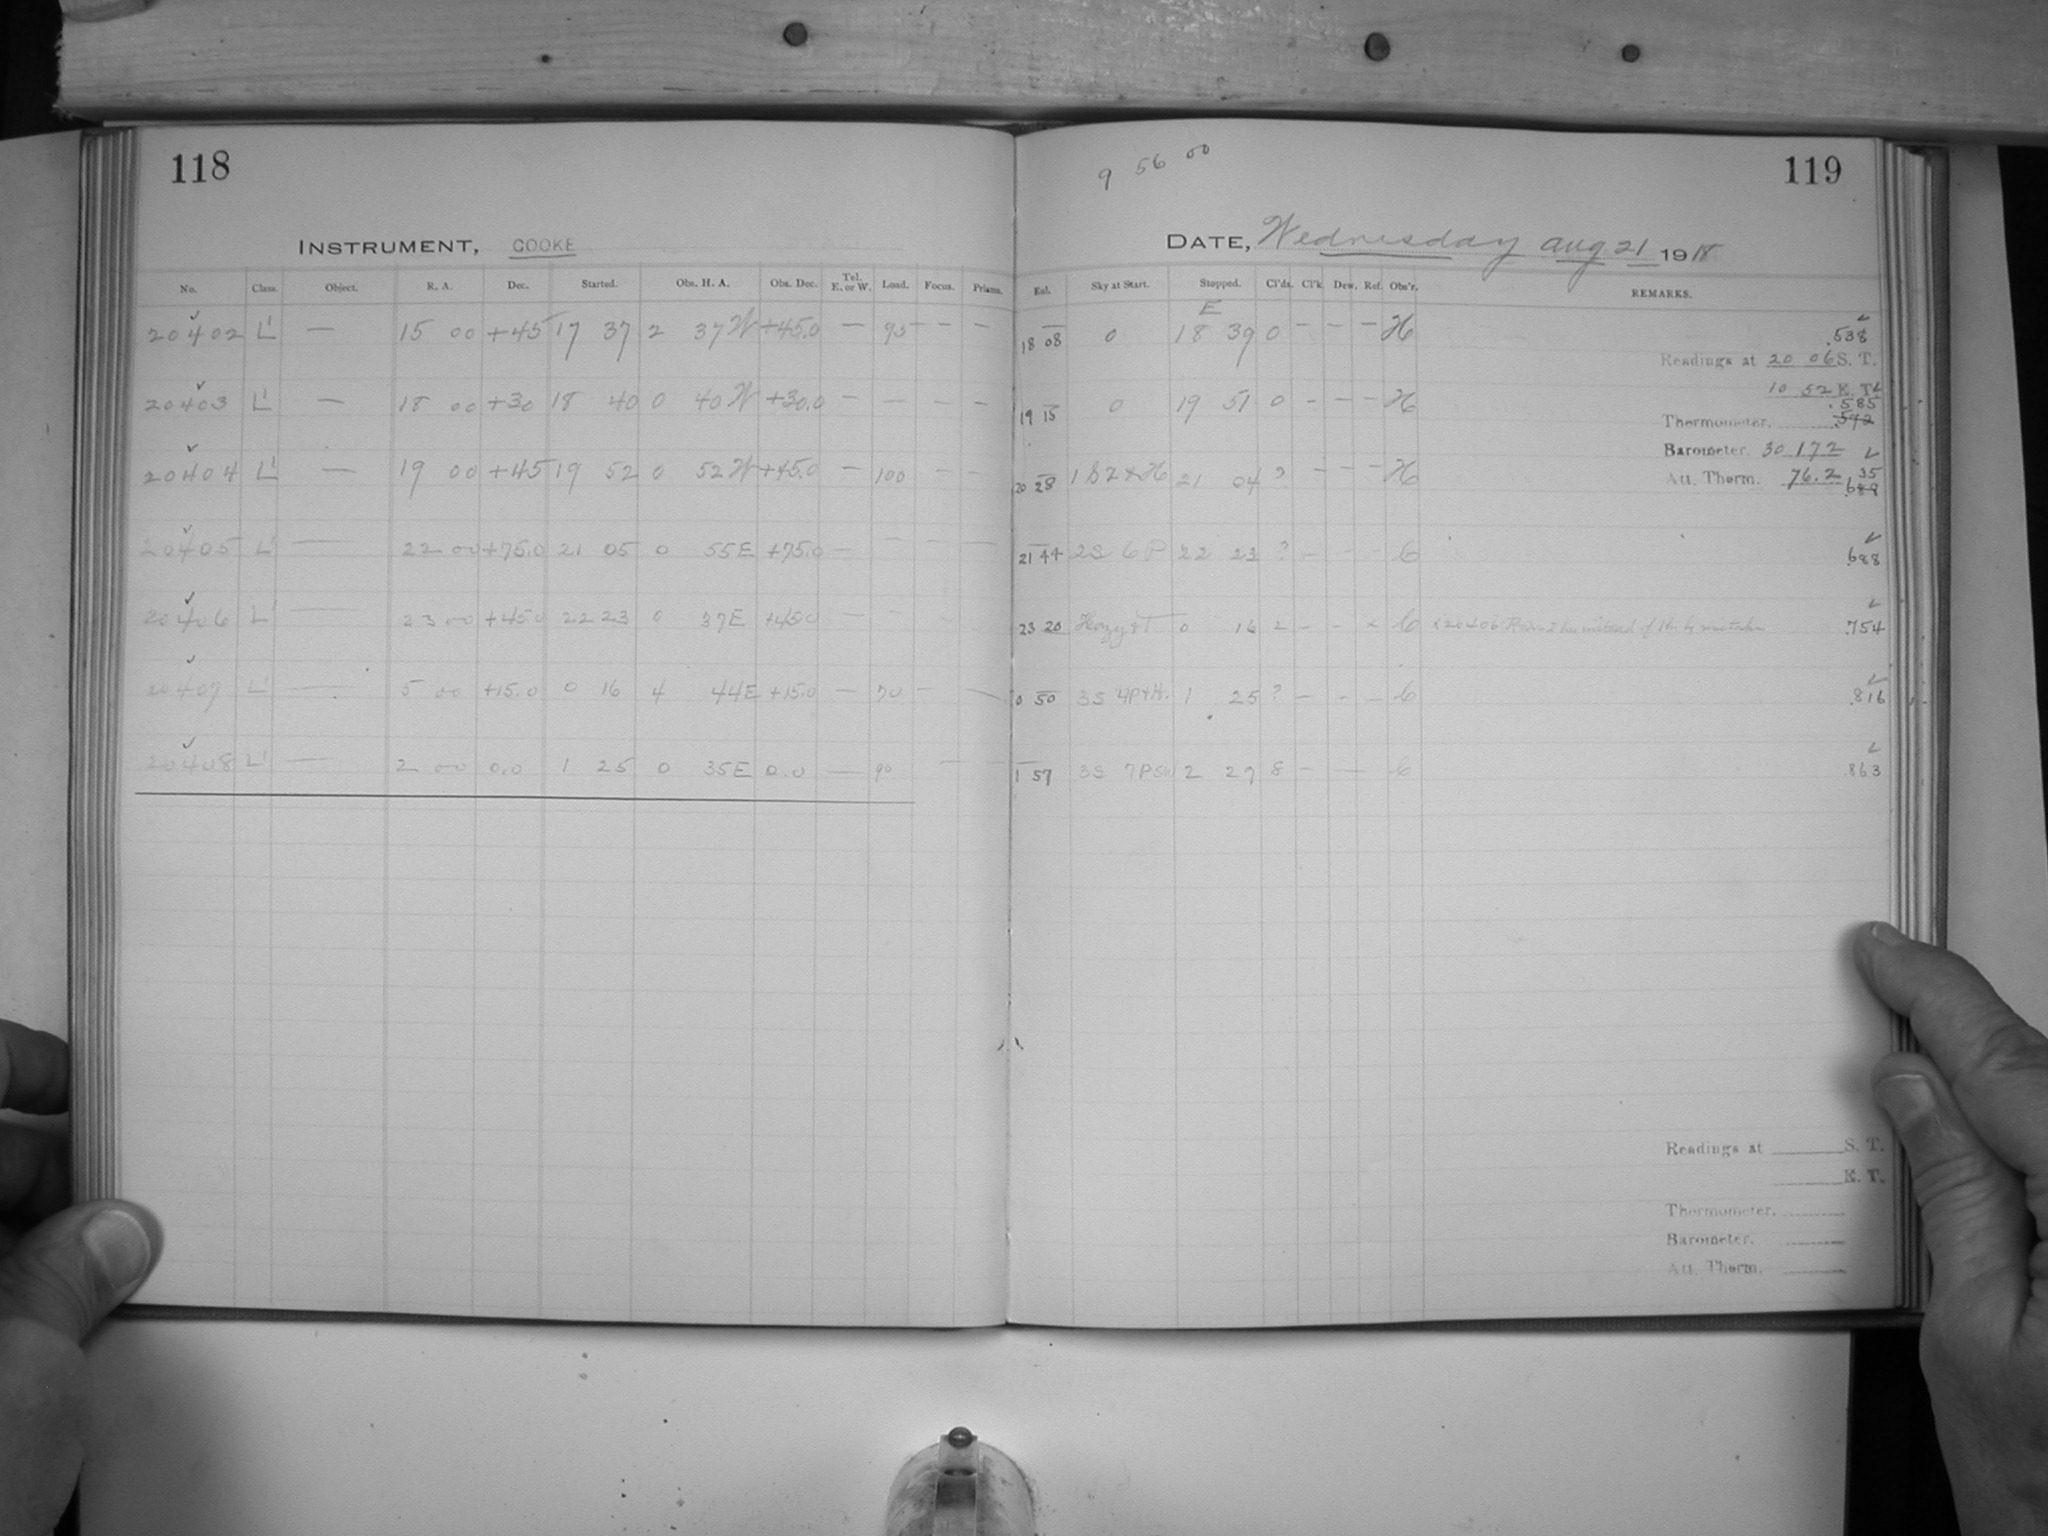 118
INSTRUMENT, COOKE
No. Class. Object. R. A. Dec. Started. Obs. H. A. Obs. Dec. Tel. E. or W. Load. Focus. Prisms.
20402 L' — 15 00 +45 17 37 2 37 W +45.0 — 95 — —
20403 L' — 18 00 +30 18 40 0 40 W +30.0 — — — —
20404 L' — 19 00 +45 19 52 0 52 W +45.0 — 100 — —
20405 L' — 22 00 +75.0 21 05 0 55 E +75.0 — — — —
20406 L' — 23 00 +45.0 22 23 0 37 E +45.0 — — — —
20407 L' — 5 00 +15.0 0 16 4 44 E +15.0 — 70 — —
20408 L' — 2 00 0.0 1 25 0 35 E 0.0 — 90 — —
9 56 00
119
DATE, Wednesday Aug 21 1918
Sky at Start. Stopped. Cl'ds. Cl'k. Dew. Ref. Obs'r. REMARKS.
E
18 08 0 18 39 0 — — — H .538
Readings at 20 06 S. T.
10 52 E. T.
19 15 0 19 51 0 - — — H .585
Thermometer. .592
Barometer. 30.172
20 28 21 04 ? — — — H 35
Att. Therm. 76.2 .688
21 44 2S 6P 22 23 ? — - - C .688
23 20 Hazy & T 0 16 2 — - × C × 20406 instead of 1h by mistake .754
0 50 3S 4P+H. 1 25 ? — - — C .816
1 57 3S 7P 2 27 8 — — C .863
Readings at S. T.
E. T.
Thermometer.
Barometer.
Att. Therm.